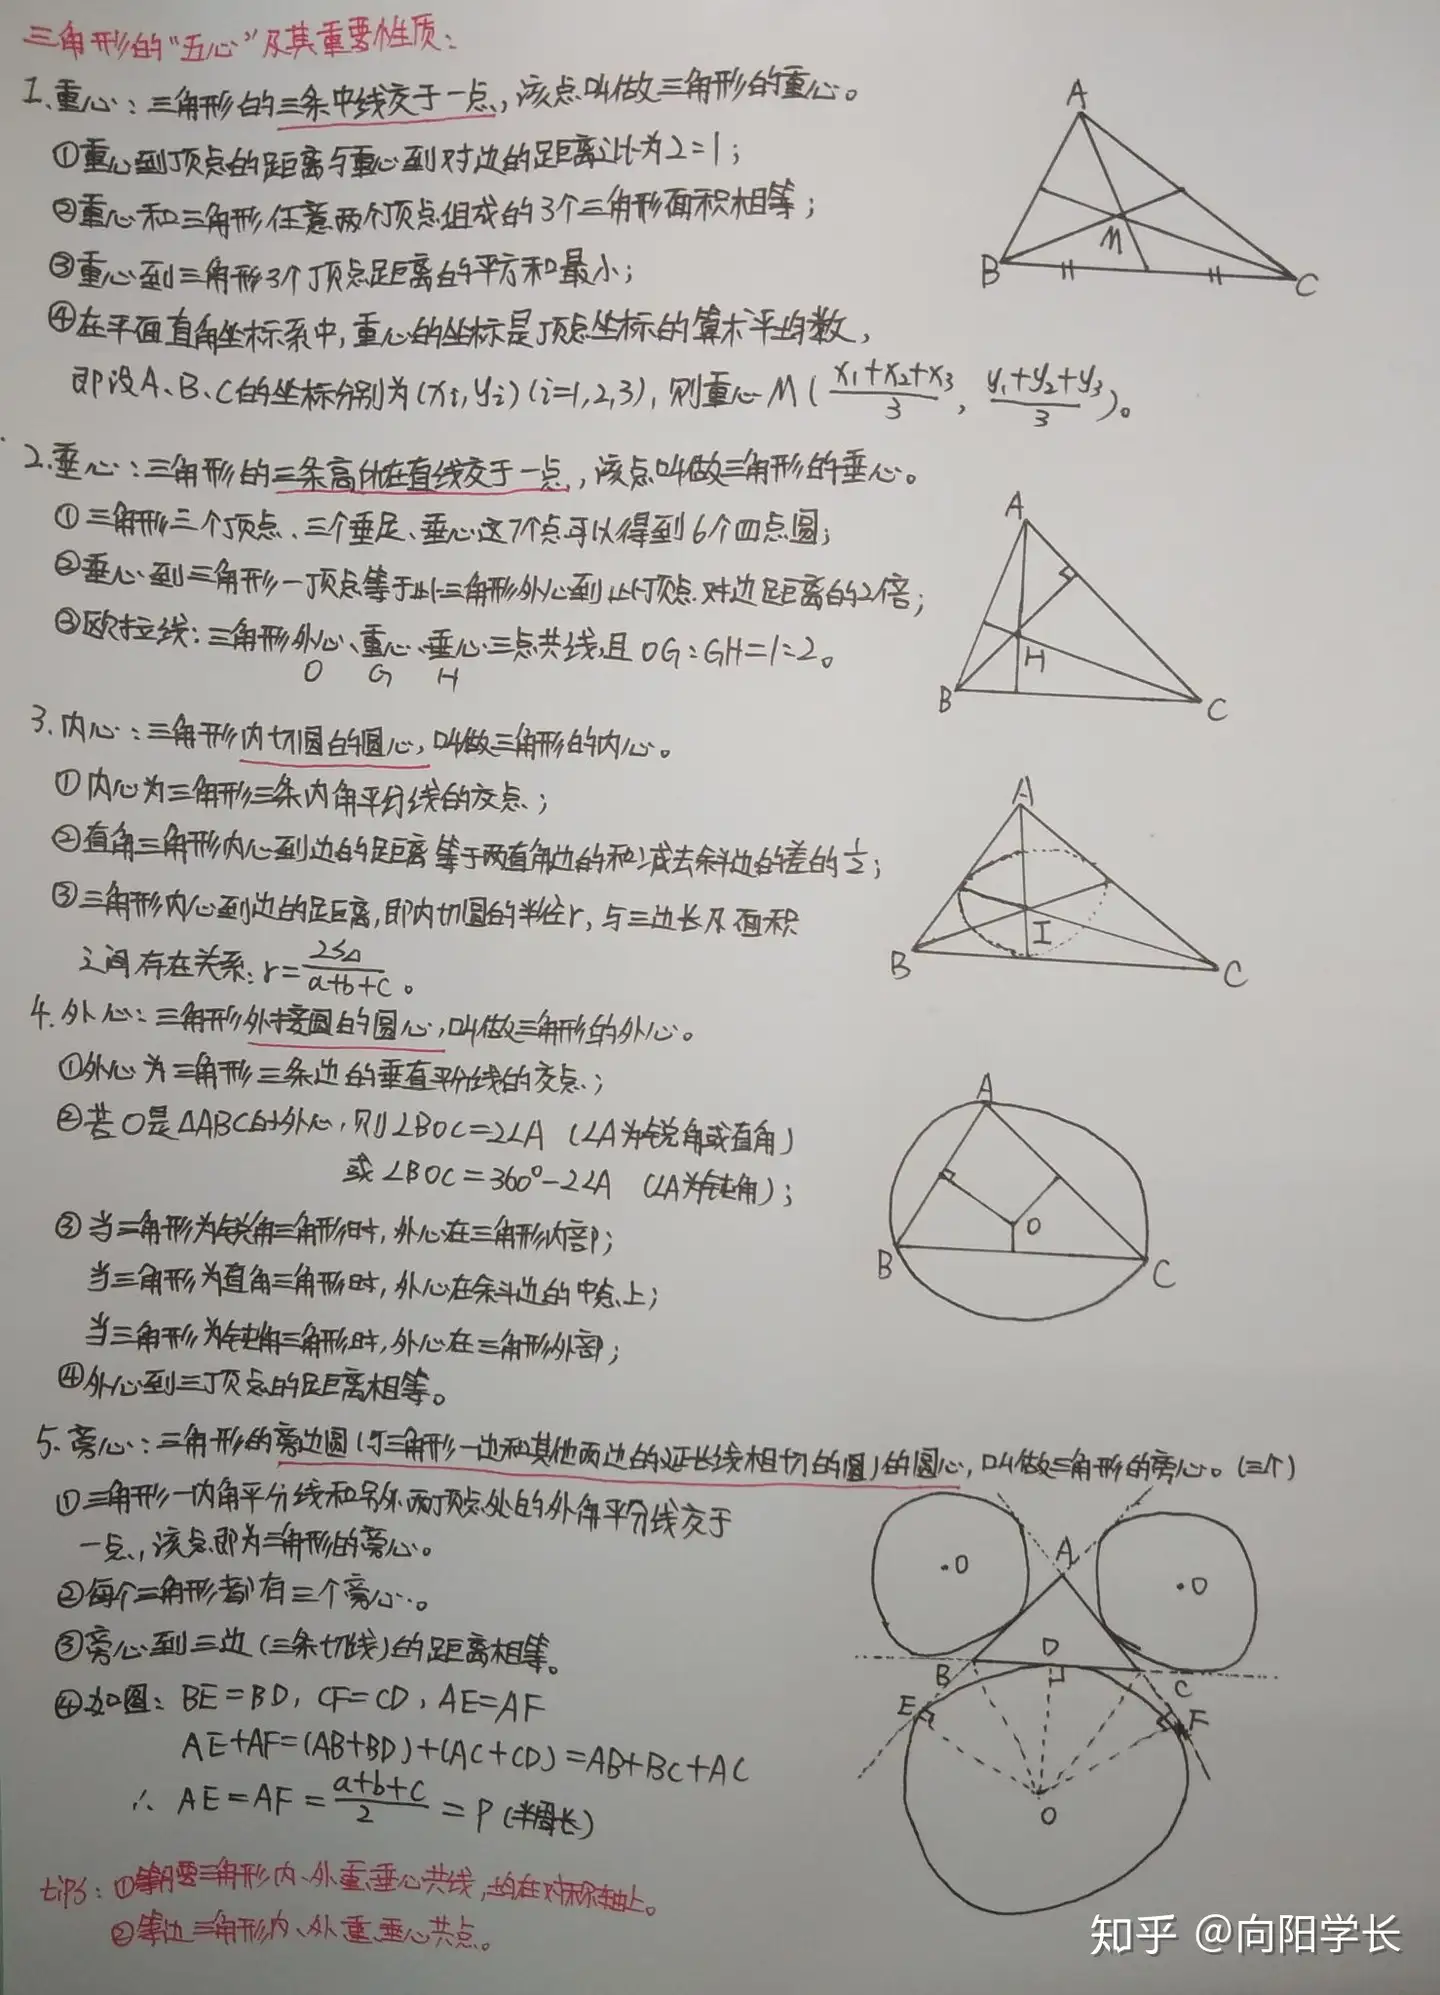 三角形的“五心”及其重要性质:
1.重心:三角形的三条中线交于一点,该点叫做三角形的重心。
①重心到顶点的距离与重心到对边的距离之比为2:1;
②重心和三角形任意两个顶点组成的3个三角形面积相等;
③重心到三角形3个顶点距离的平方和最小;
④在平面直角坐标系中,重心的坐标是顶点坐标的算术平均数,
即设A、B、C的坐标分别为(xi,yi)(i=1,2,3),则重心M((x1+x2+x3)/3, (y1+y2+y3)/3)。
A
B
M
C
2.垂心:三角形的三条高所在直线交于一点,该点叫做三角形的垂心。
①三角形三个顶点、三个垂足、垂心这7个点可以得到6个四点圆;
②垂心到三角形一顶点等于此三角形外心到此顶点对边距离的2倍;
③欧拉线:三角形外心、重心、垂心三点共线,且OG:GH=1:2。
O G H
A
H
B
C
3.内心:三角形内切圆的圆心,叫做三角形的内心。
①内心为三角形三条内角平分线的交点;
②直角三角形内心到边的距离等于两直角边的和减去斜边的差的1/2;
③三角形内心到边的距离,即内切圆的半径r,与三边长及面积
之间存在关系:r=2S△/(a+b+c)。
A
I
B
C
4.外心:三角形外接圆的圆心,叫做三角形的外心。
①外心为三角形三条边的垂直平分线的交点;
②若O是△ABC的外心,则∠BOC=2∠A (∠A为锐角或直角)
或∠BOC=360°-2∠A (∠A为钝角);
③当三角形为锐角三角形时,外心在三角形内部;
当三角形为直角三角形时,外心在斜边的中点上;
当三角形为钝角三角形时,外心在三角形外部;
④外心到三顶点的距离相等。
A
O
B
C
5.旁心:三角形的旁边圆(与三角形一边和其他两边的延长线相切的圆)的圆心,叫做三角形的旁心。(三个)
①三角形一内角平分线和另外两顶点处的外角平分线交于
一点,该点即为三角形的旁心。
②每个三角形都有三个旁心。
③旁心到三边(三条切线)的距离相等。
④如图:BE=BD,CF=CD,AE=AF
AE+AF=(AB+BD)+(AC+CD)=AB+BC+AC
∴ AE=AF=(a+b+c)/2=P(半周长)
A
O
O
D
B
C
E
F
O
tips:①等腰三角形内、外、重、垂心共线,均在对称轴上。
②等边三角形内、外、重、垂心共点。
知乎 @向阳学长